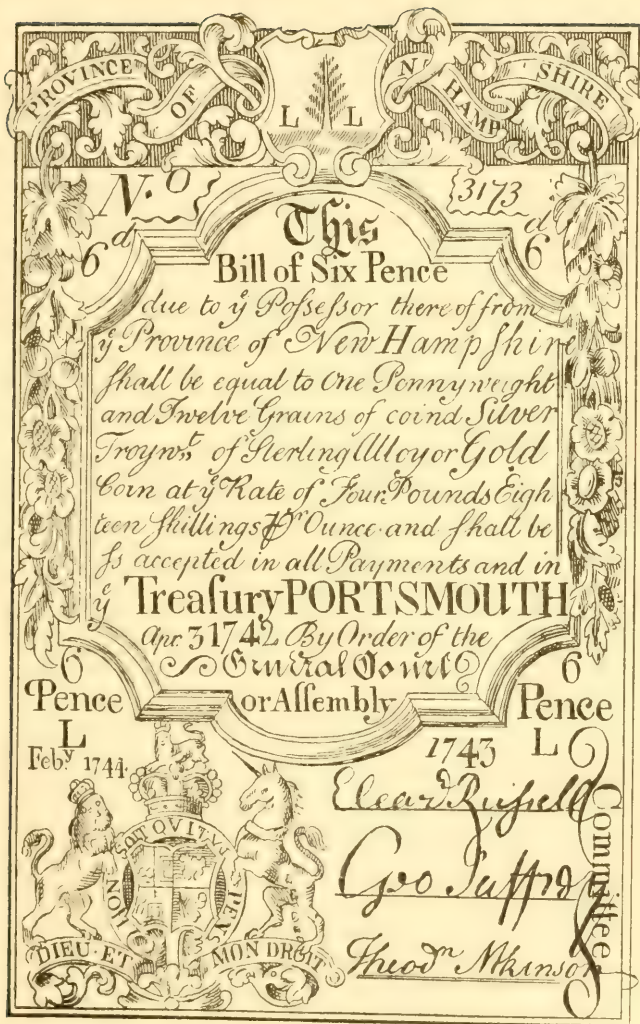 PROVINCE OF N HAMP SHIRE
L L
N.º 3173
6ᵈ 6ᵈ
This
Bill of Six Pence
due to ÿ Poſseſsor there of from
ÿ Province of New Hampſhire
ſhall be equal to One Pennyweight
and Twelve Grains of coind Silver
Troywᵗ. of Sterling Alloy or Gold
Coin at ÿ Rate of Four Pounds Eigh
teen ſhillings ⅌ʳ Ounce and ſhall be
ſs accepted in all Payments and in
ÿ Treaſury PORTSMOUTH
Apr. 3 1742 By Order of the
General Court
or Aſſembly
6 Pence 6 Pence
L L
Febʸ 1744. 1743
Eleaᵈ Ruſsell
Geo Jaffrey
Theodᵒʳ Atkinson
Committee
HONI SOIT QVI MAL Y PENSE
DIEU·ET MON DROIT